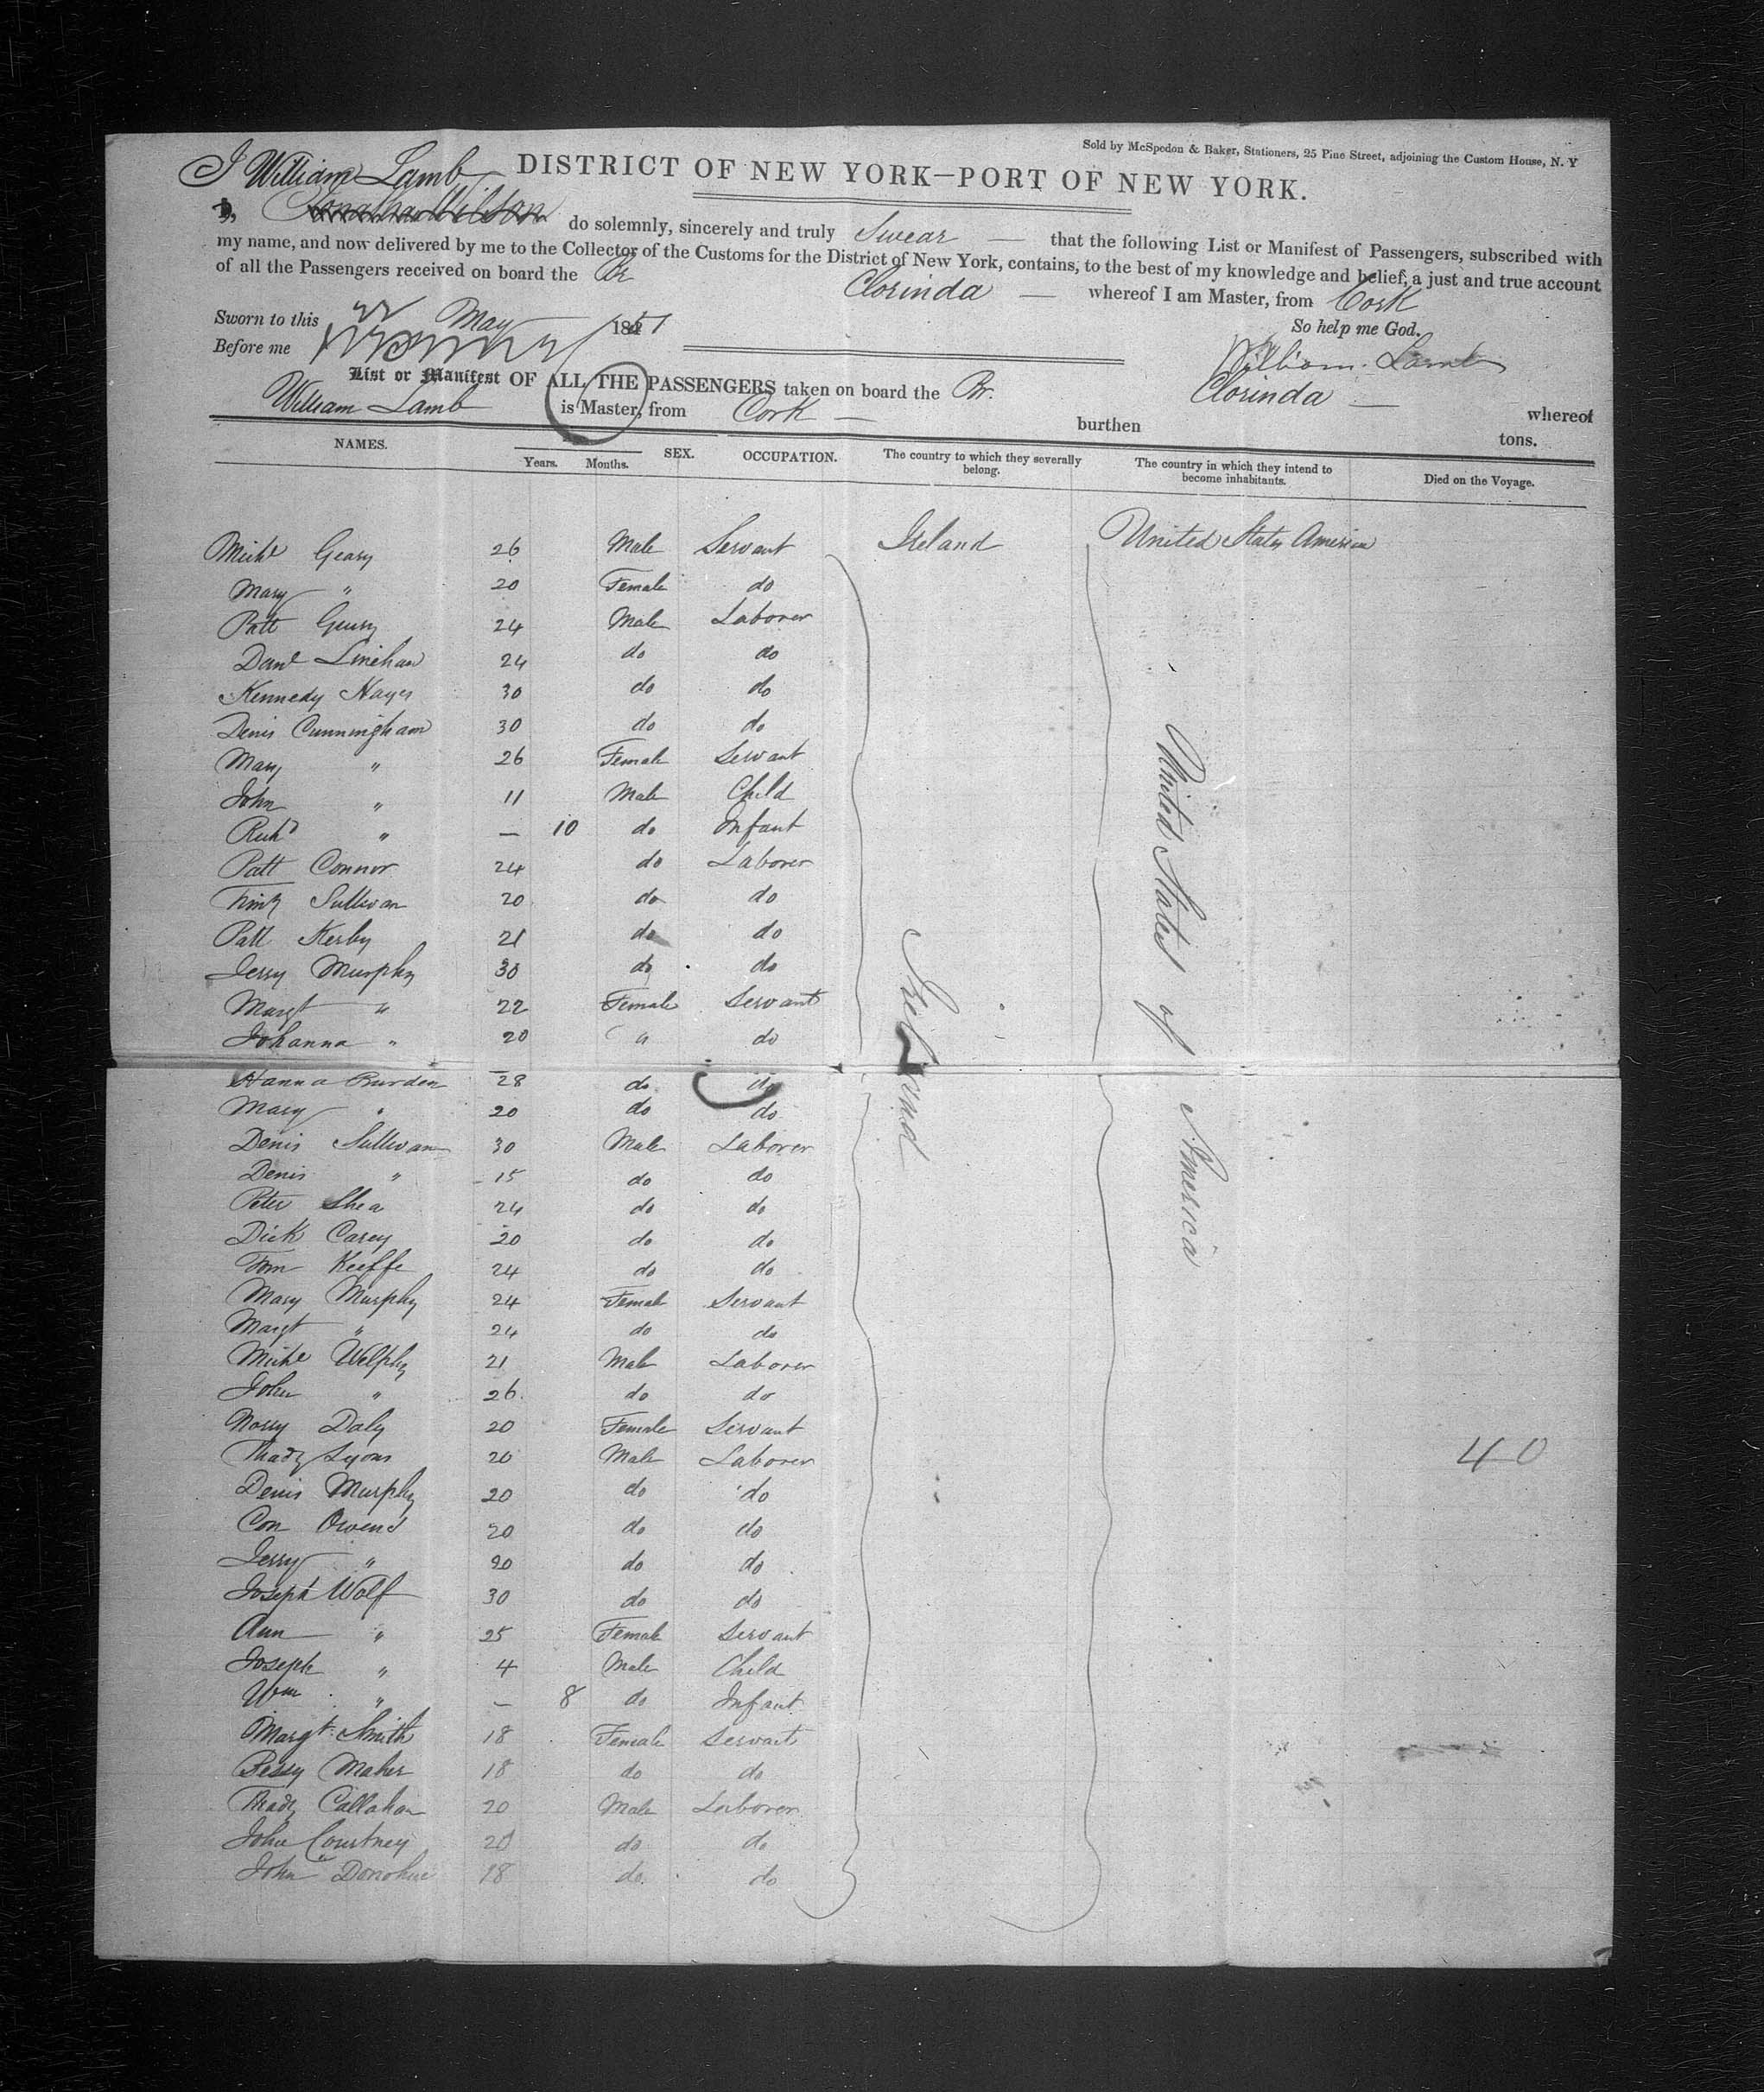 Sold by McSpedon & Baker, Stationers, 25 Pine Street, adjoining the Custom House, N. Y
I William Lamb
DISTRICT OF NEW YORK—PORT OF NEW YORK.
I, Jonathan Wilson do solemnly, sincerely and truly Swear — that the following List or Manifest of Passengers, subscribed with
my name, and now delivered by me to the Collector of the Customs for the District of New York, contains, to the best of my knowledge and belief, a just and true account
of all the Passengers received on board the Br Clorinda — whereof I am Master, from Cork
Sworn to this May 1851 So help me God.
Before me William Lamb
List or Manifest OF ALL THE PASSENGERS taken on board the Br. Clorinda — whereof
William Lamb is Master, from Cork — burthen tons.
NAMES. Years. Months. SEX. OCCUPATION. The country to which they severally belong. The country in which they intend to become inhabitants. Died on the Voyage.
Michl Geary 26 Male Servant Ireland United States America
Mary " 20 Female do
Patt Geary 24 Male Laborer
Danl Linehan 24 do do
Kennedy Hayes 30 do do
Denis Cunningham 30 do do
Mary " 26 Female Servant
John " 11 Male Child
Richd " — 10 do Infant
Patt Connor 24 do Laborer
Timy Sullivan 20 do do
Patt Kerby 21 do do
Jerry Murphy 30 do do
Margt " 22 Female Servant
Johanna " 20 " do
Hanna Burden 28 do do
Mary " 20 do do
Denis Sullivan 30 Male Laborer
Denis " 15 do do
Peter Shea 24 do do
Dick Carey 20 do do
Tom Keeffe 24 do do
Mary Murphy 24 Female Servant
Margt " 24 do do
Michl Welphy 21 Male Laborer
John " 26 do do
Norry Daly 20 Female Servant
Thady Lyons 20 Male Laborer
Denis Murphy 20 do do
Con Owens 20 do do
Jerry " 20 do do
Joseph Wolf 30 do do
Ann " 25 Female Servant
Joseph " 4 Male Child
Wm " — 8 do Infant
Margt Smith 18 Female Servant
Bessy Maher 18 do do
Thady Callahan 20 Male Laborer
John Courtney 20 do do
John Donohue 18 do do
Ireland
United States of America
40